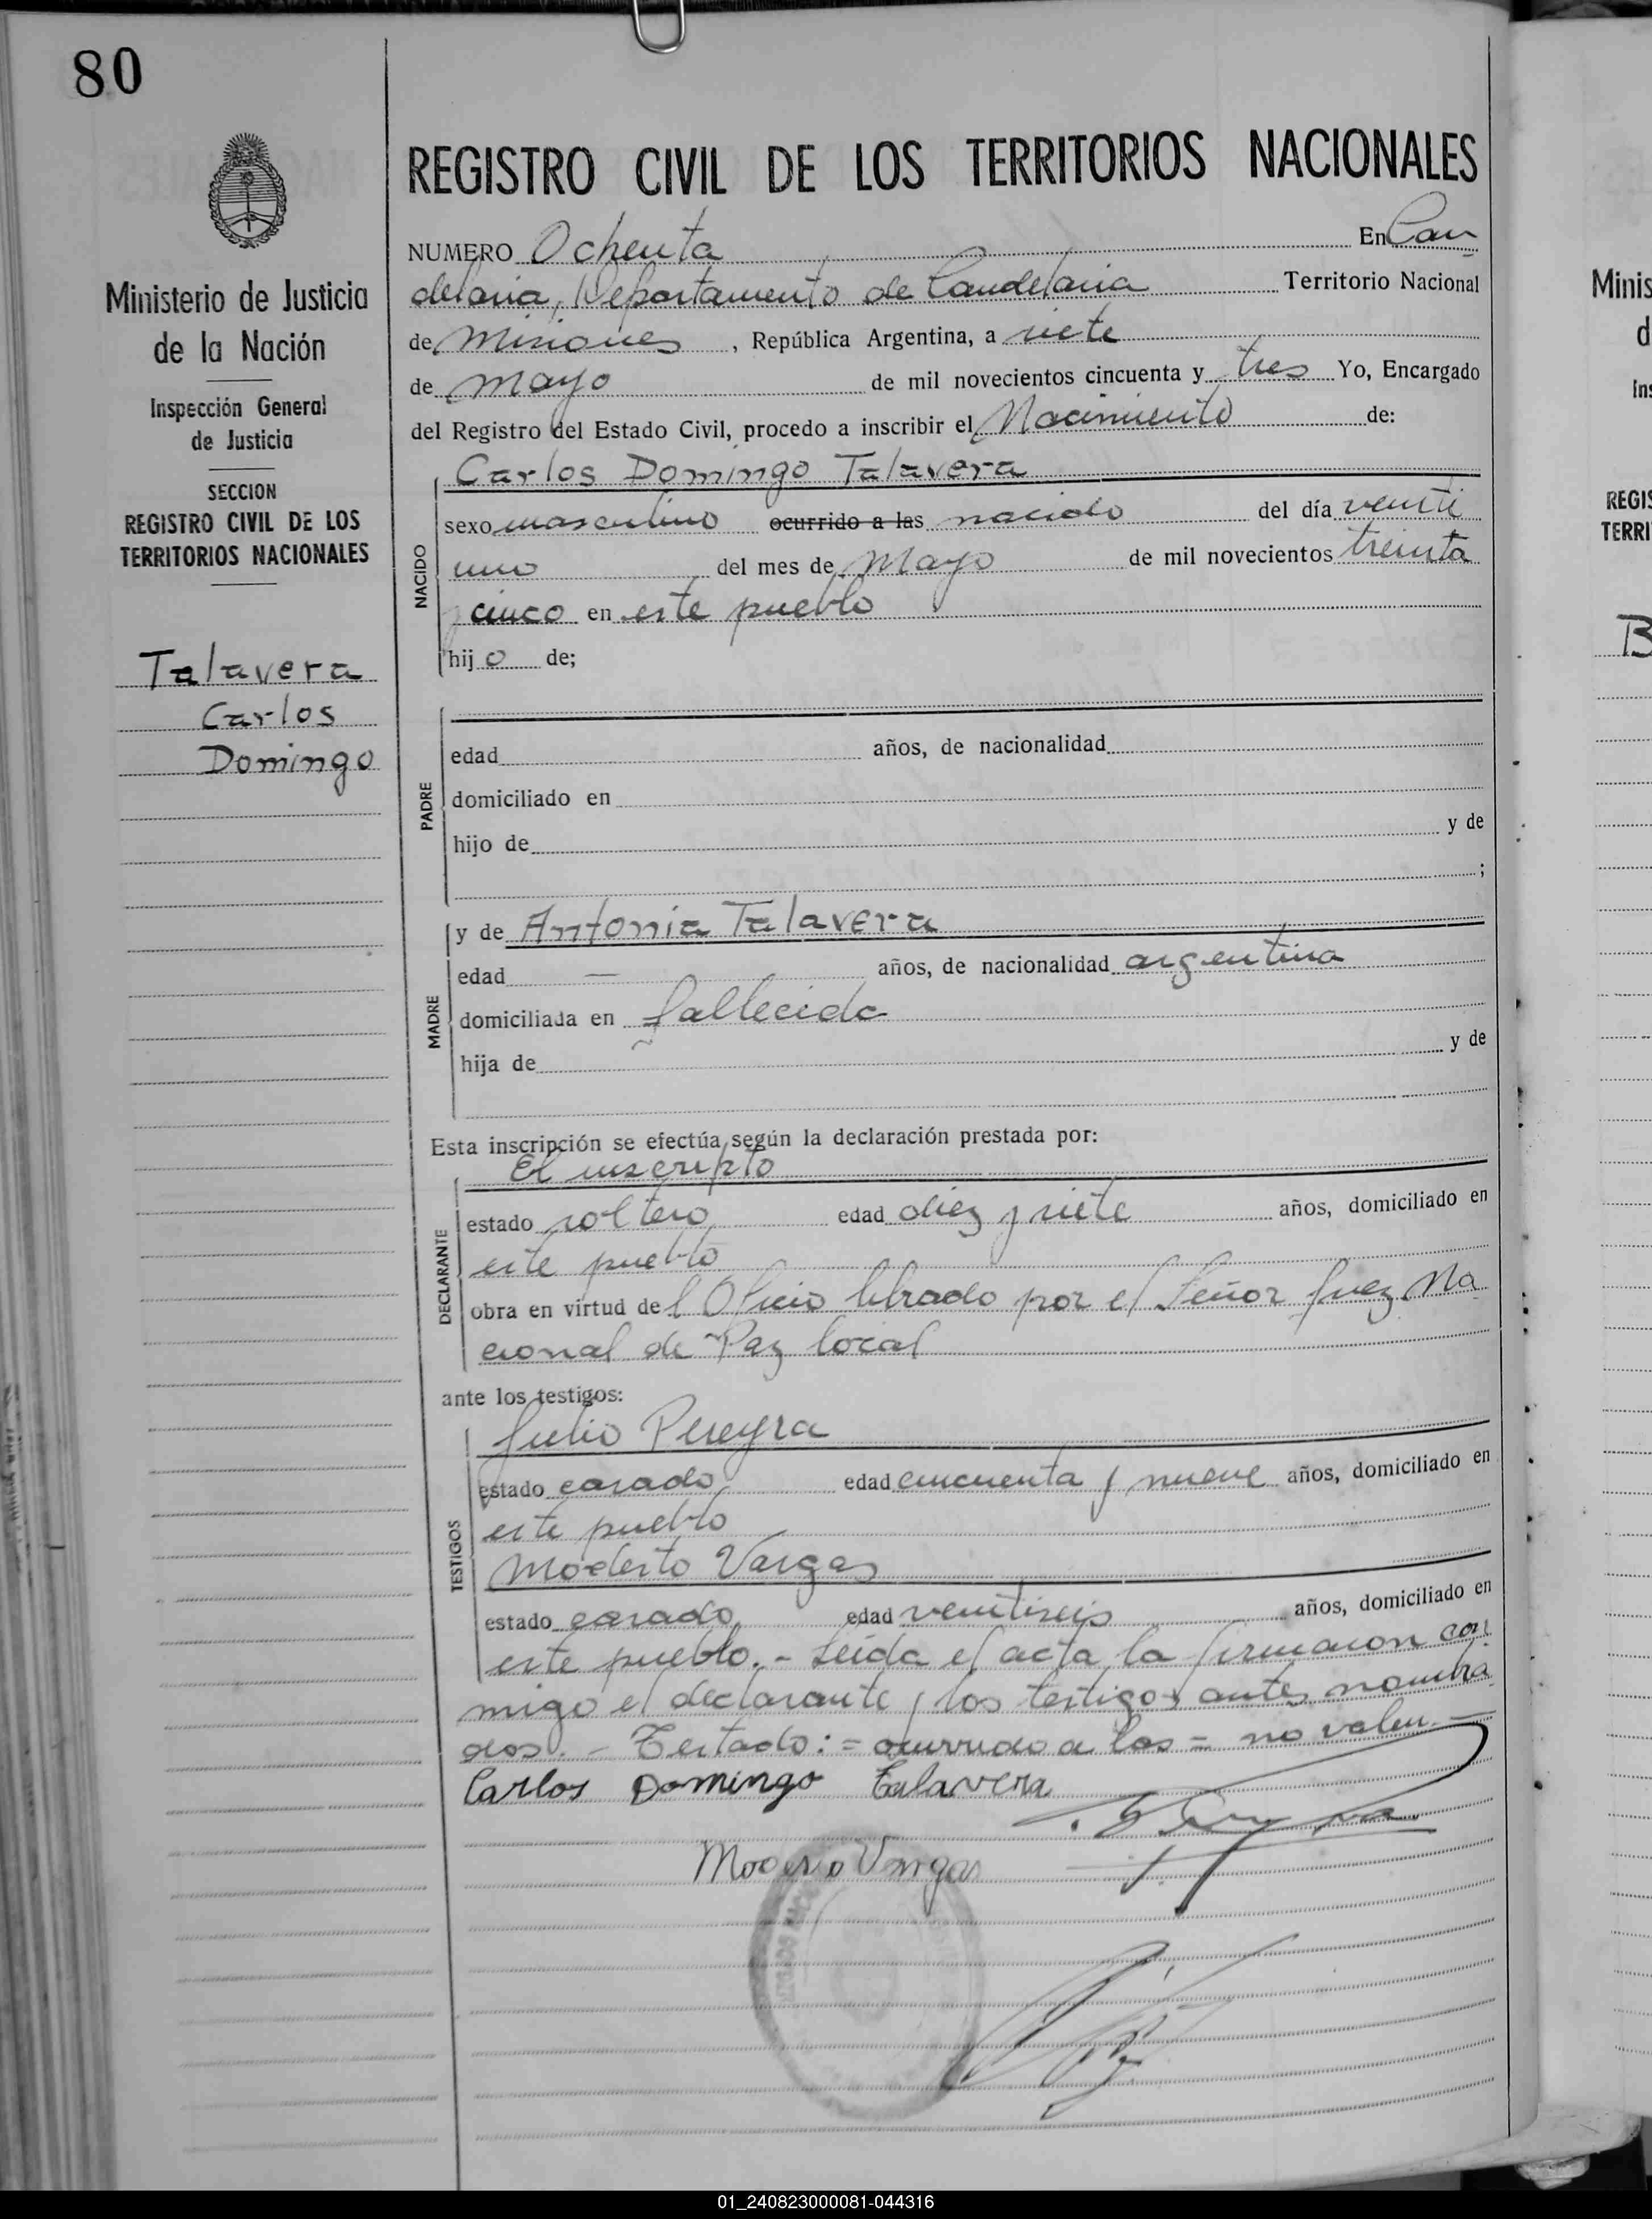 80
Ministerio de Justicia
de la Nación
Inspección General
de Justicia
SECCION
REGISTRO CIVIL DE LOS
TERRITORIOS NACIONALES
Talavera
Carlos
Domingo
REGISTRO CIVIL DE LOS TERRITORIOS NACIONALES
NUMERO Ochenta En Can
delaria, Departamento de Candelaria Territorio Nacional
de Misiones, República Argentina, a siete
de Mayo de mil novecientos cincuenta y tres Yo, Encargado
del Registro del Estado Civil, procedo a inscribir el Nacimiento de:
Carlos Domingo Talavera
NACIDO
sexo masculino ocurrido a las nacido del día veinti
uno del mes de Mayo de mil novecientos treinta
y cinco en este pueblo
hijo de;
PADRE
edad años, de nacionalidad
domiciliado en
hijo de y de
;
MADRE
y de Antonia Talavera
edad — años, de nacionalidad argentina
domiciliada en fallecida
hija de y de
Esta inscripción se efectúa según la declaración prestada por:
El inscripto
DECLARANTE
estado soltero edad diez y siete años, domiciliado en
este pueblo
obra en virtud del Oficio librado por el Señor Juez Na
cional de Paz local
ante los testigos:
Julio Pereyra
TESTIGOS
estado casado edad cincuenta y nueve años, domiciliado en
este pueblo
Modesto Vargas
estado casado edad veintiseis años, domiciliado en
este pueblo.- Leida el acta la firmaron con
migo el declarante y los testigos antes nombra
dos.- Testado:= ocurrido a las = no valen.—
Carlos Domingo Talavera
Modesto Vargas
Minis
d
Ins
REGIS
TERRI
B
01_240823000081-044316